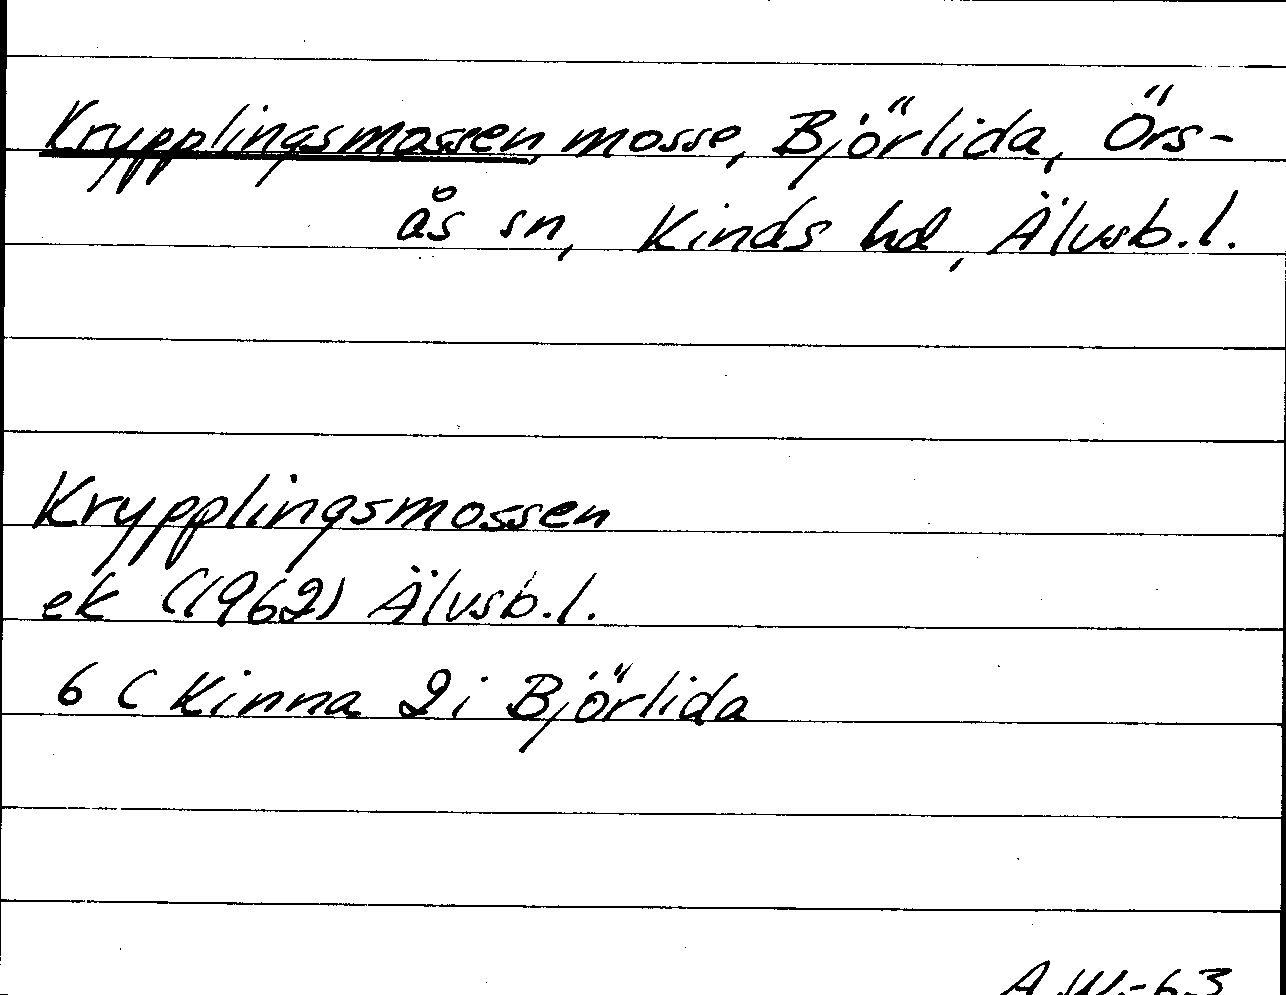 Krypplingsmossen, mosse, Björlida, Örs-
ås sn, Kinds hd, Älvsb.l.
Krypplingsmossen
ek (1962) Älvsb.l.
6 C Kinna 2i Björlida
A.W.-63